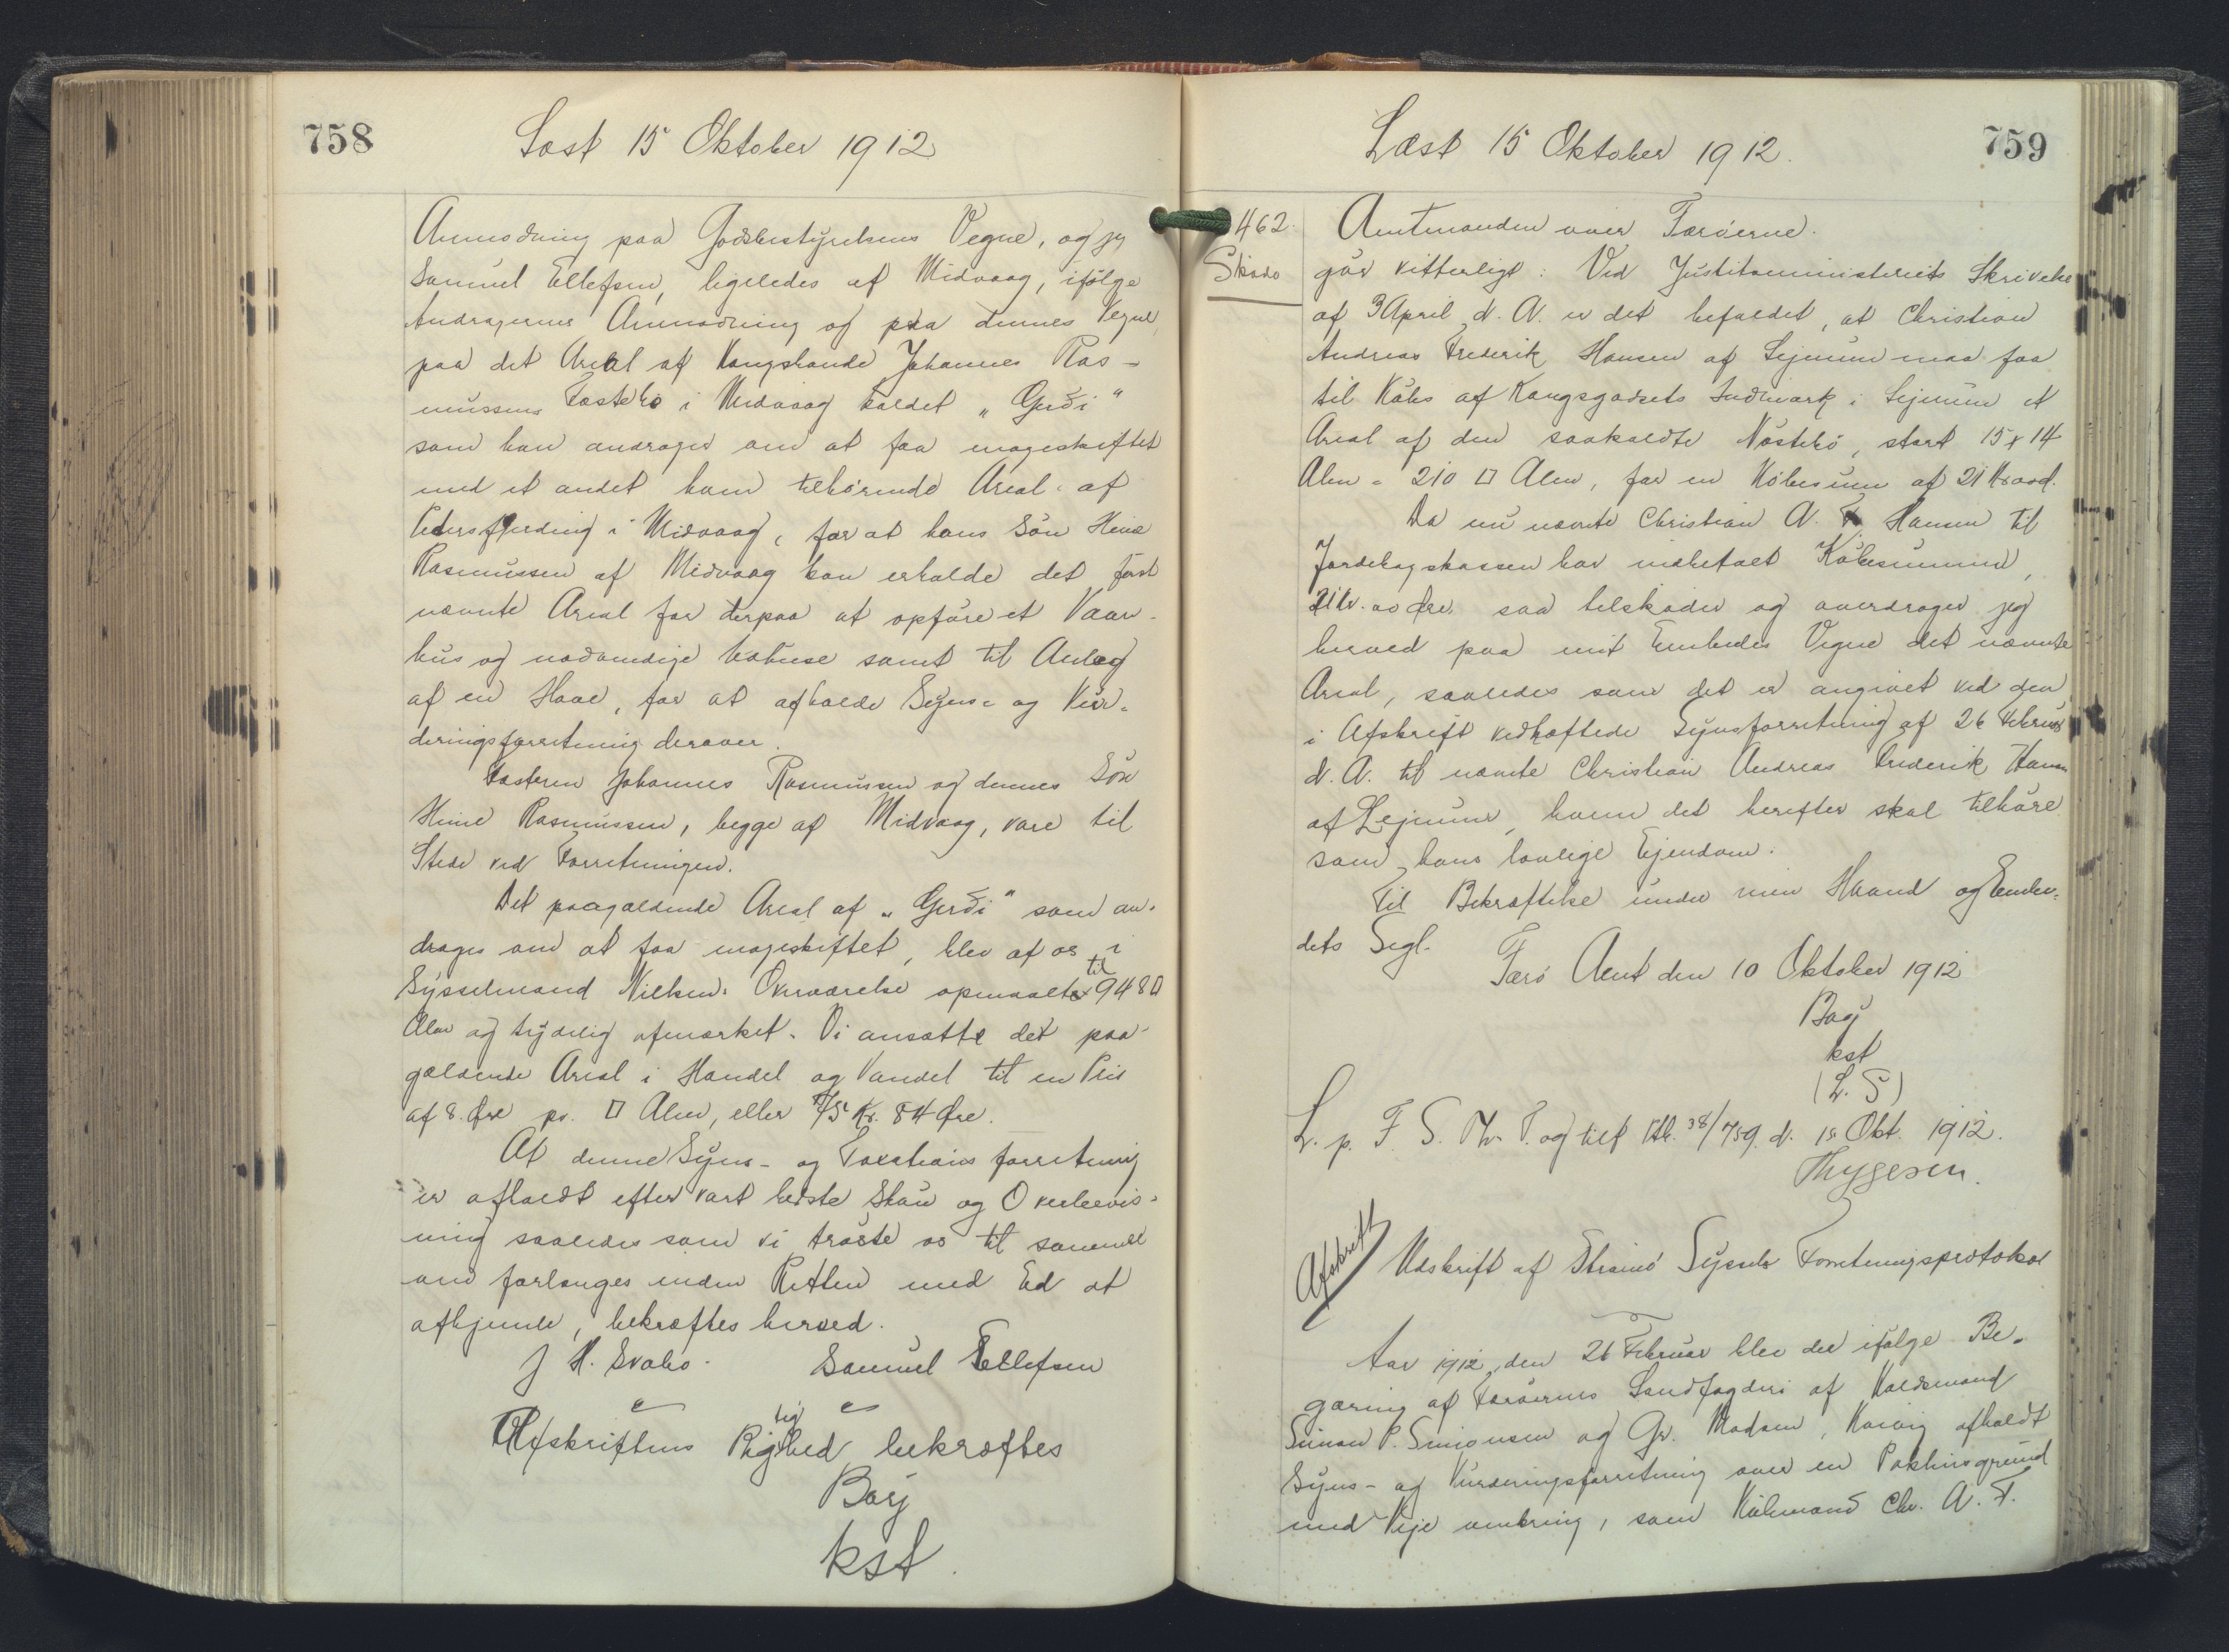 758
Læst 15 Oktober 1912
Anmodning paa Godsbestyrelsens Vegne, og jeg
Samuel Ellefsen, ligeledes af Midvaag, ifølge
Andragerens Anmodning og paa dennes Vegne,
paa det Areal af Kongsbonde Johannes Ras-
mussens Fæstebo i Midvaag kaldet „Gerði"
som han andrager om at faa mageskiftet
med et andet ham tilhørende Areal af
i Midvaag, for at hans Søn Heine
Rasmussen af Midvaag kan erholde det først
nævnte Areal for derpaa at opføre et Vaan-
hus og nødvendige Udhuse samt til Anlæg
af en Have, for at afholde Syns- og Vur-
deringsforretning derover.
Fæsteren Johannes Rasmussen og dennes Søn
Heine Rasmussen, begge af Midvaag, vare til
Stede ved Forretningen.
Det paagældende Areal af „Gerði" som an-
drages om at faa mageskiftet, blev af os i
Sysselmand Nielsens Overværelse opmaalt til 948 □
Alen og tydelig afmærket. Vi ansatte det paa-
gældende Areal i Handel og Vandel til en Pris
af 8 Øre pr. □ Alen, eller 75 Kr. 84 Øre.
At denne Syns- og Taxations forretning
er afholdt efter vort bedste Skøn og Overbevis-
ning saaledes som vi trøste os til samme
om forlanges inden Retten med Ed at
afhjemle, bekræftes herved.
J H. Svabo. Samuel Ellefsen
Afskriftens Rigtighed bekræftes
Bærj
kst.
Læst 15 Oktober 1912.
759
462.
Skøde
Amtmanden over Færøerne.
gør vitterligt: Ved Justitsministeriets Skrivelse
af 3 April d. A. er det befalet, at Christian
Andreas Frederik Hansen af Sejnum maa faa
til Købs af Kongsgodsets Indmark i Sejnum et
Areal af den saakaldte Nøstebø, stort 15 x 14
Alen = 210 □ Alen, for en Købesum af 21 Kr 00 Ø.
Da nu nævnte Christian A. F. Hansen til
Jordebogskassen har indbetalt Købesummen,
21 Kr. 00 Øre, saa tilskøder og overdrager jeg
herved paa mit Embedes Vegne det nævnte
Areal, saaledes som det er angivet ved den
i Afskrift vedhæftede Synsforretning af 26 Februar
d. A. til nævnte Christian Andreas Frederik Hansen
af Sejnum, ham det herefter skal tilhøre
som hans lovlige Ejendom.
Til Bekræftelse under min Haand og Embe-
dets Segl.
Færø Amt den 10 Oktober 1912
Bærj
kst
(L. S)
L. p. F. S. Th. P. og tilf Ptk. 38/759 d. 15 Okt. 1912.
Thygesen.
Afskrift
Udskrift af Strømø Syssels Forretningsprotokol
Aar 1912, den 26 Februar blev der ifølge Be-
gæring af Færøernes Landfogderi af Voldsmand
Simon P. Simonsen og Gr. Madsen, afholdt
Syns- og Vurderingsforretning over en Pakhusgrund
med Veje omkring, som Købmand Chr. A. F.